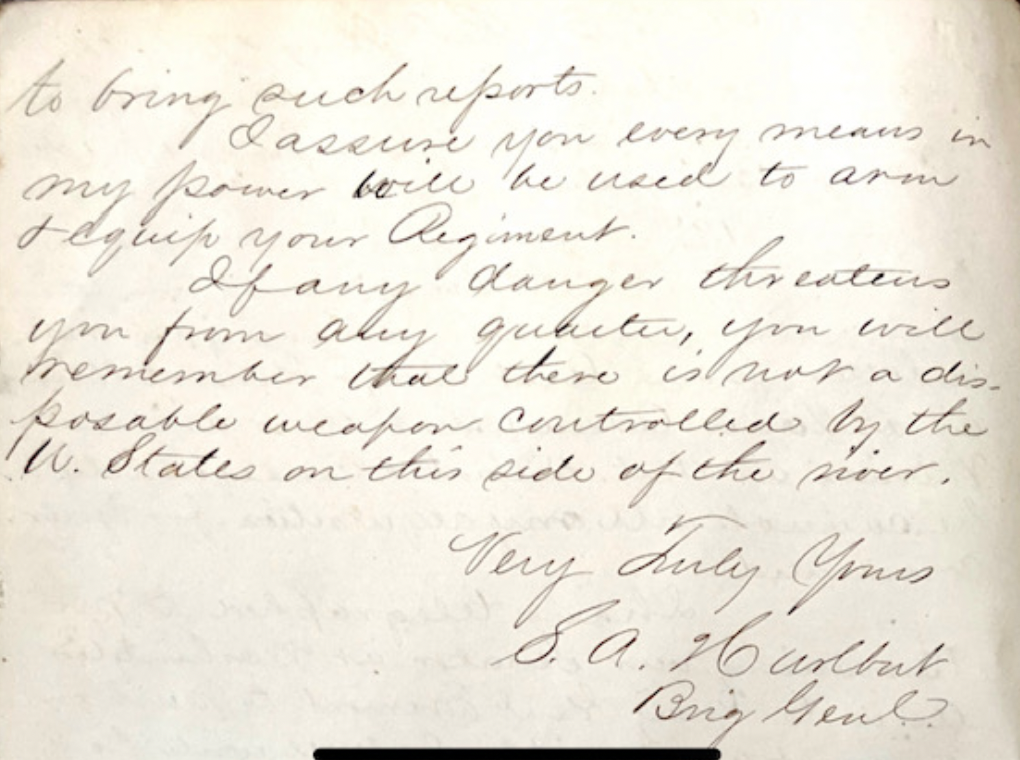 to bring such reports.
I assure you every means in
my power will be used to arm
& equip your Regiment.
If any danger threatens
you from any quarter, you will
remember that there is not a dis-
posable weapon controlled by the
U. States on this side of the river.
Very Truly Yours
S. A. Hurlbut
Brig Genl.